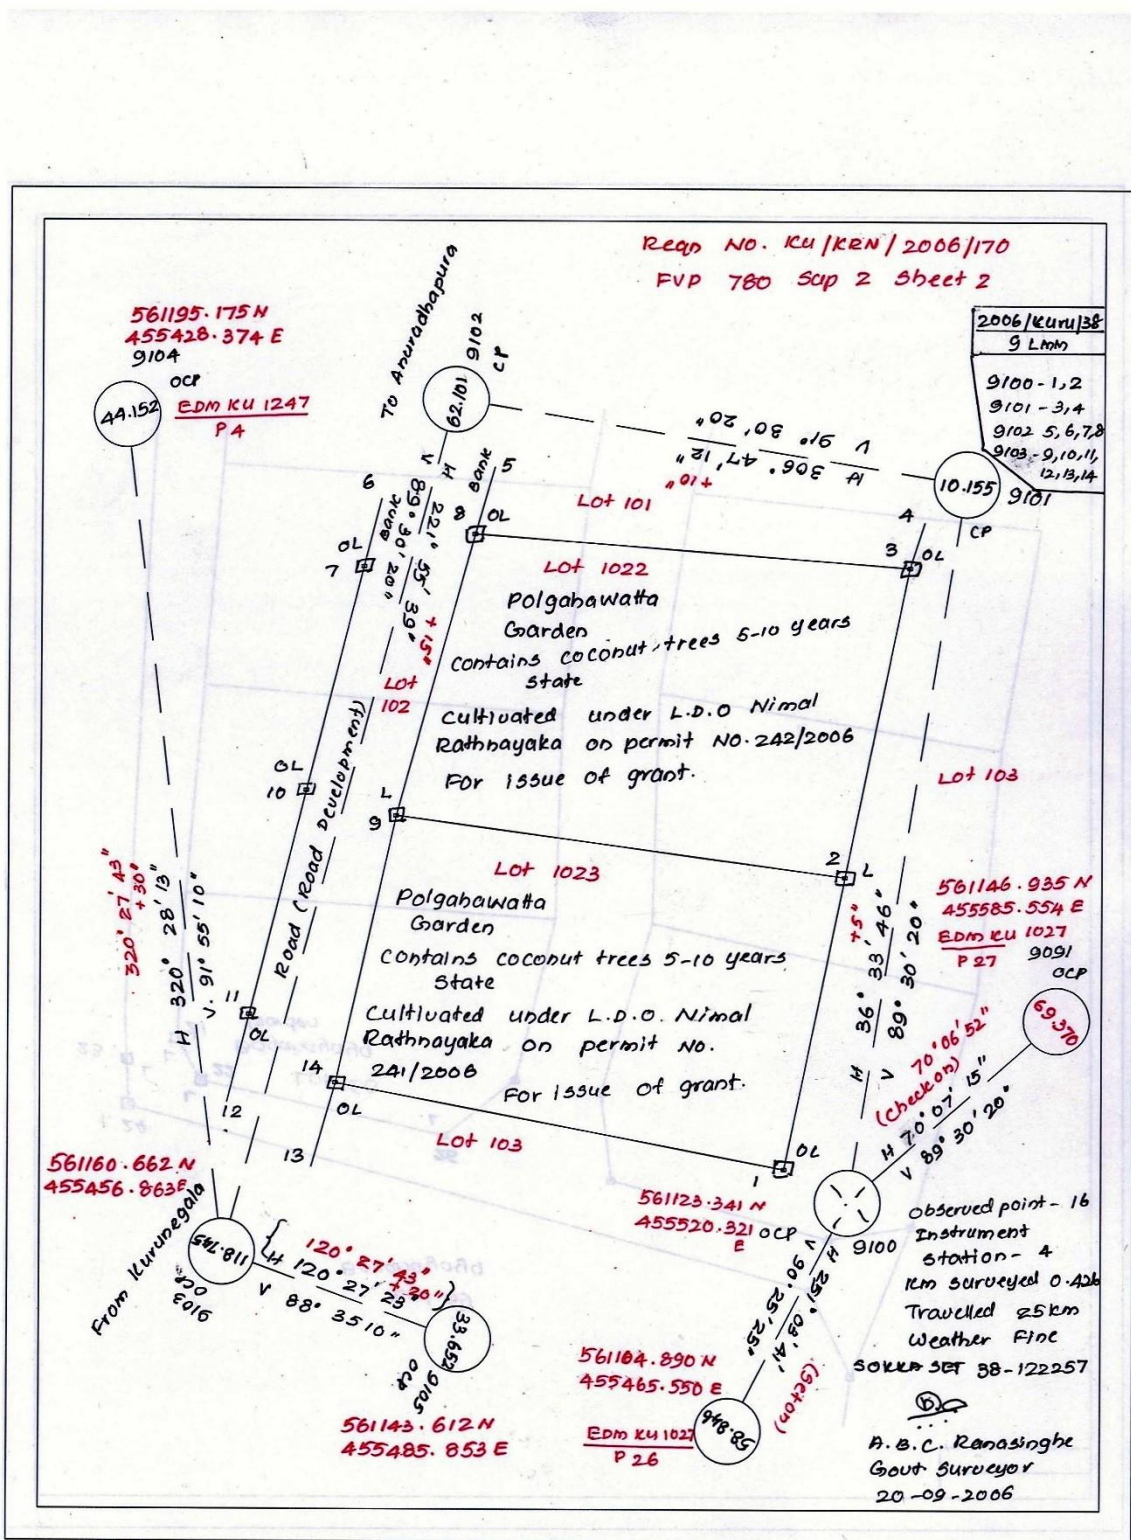 Reqn NO. KU/KRN/2006/170
FVP 780 Sup 2 Sheet 2
561195.175 N
455428.374 E
9104
OCP
44.152
EDM KU 1247
P 4
To Anuradhapura
62.101
9102
CP
2006/Kuru/38
9 LMM
9100-1,2
9101-3,4
9102 5,6,7,8
9103-9,10,11,
12,13,14
V 91° 30' 20"
H 306° 47' 12"
+10"
10.155
9101
CP
6
Bank
5
Bank
V 89° 30' 20"
H 221° 55' 39"
+15"
Lot 101
4
3
OL
8
OL
OL
7
Lot 1022
Polgahawatta
Garden
Contains coconut trees 5-10 years
State
Cultivated under L.D.O Nimal
Rathnayaka on permit NO. 242/2006
For issue of grant.
Lot
102
Road (Road Development)
OL
10
L
9
Lot 103
2
L
Lot 1023
Polgahawatta
Garden
Contains coconut trees 5-10 years
State
Cultivated under L.D.O. Nimal
Rathnayaka on permit No.
241/2006
For issue of grant.
320° 27' 43"
+30"
H 320° 28' 13"
V. 91° 55' 10"
+5"
H 36° 33' 46"
V 89° 30' 20"
561146.935 N
455585.554 E
EDM KU 1027
P 27
9091
OCP
69.370
70° 06' 52"
(Check on)
H 70° 07' 15"
V 89° 30' 20"
11
OL
14
OL
12
13
Lot 103
OL
1
561160.662 N
455456.863 E
From Kurunegala
118.745
OCP
9103
120° 27' 43"
+20"
H 120° 27' 23"
V 88° 35 10"
33.652
9105
OCP
561143.612 N
455485.853 E
561123.341 N
455520.321
E
OCP
9100
V 90° 25' 25"
H 251° 03' 41"
(Set on)
561104.890 N
455465.550 E
EDM KU 1027
P 26
58.846
Observed point - 16
Instrument
station - 4
Km surveyed 0.426
Travelled 25 km
Weather Fine
SOKKA SET 38-122257
A.B.C. Ranasinghe
Govt Surveyor
20-09-2006